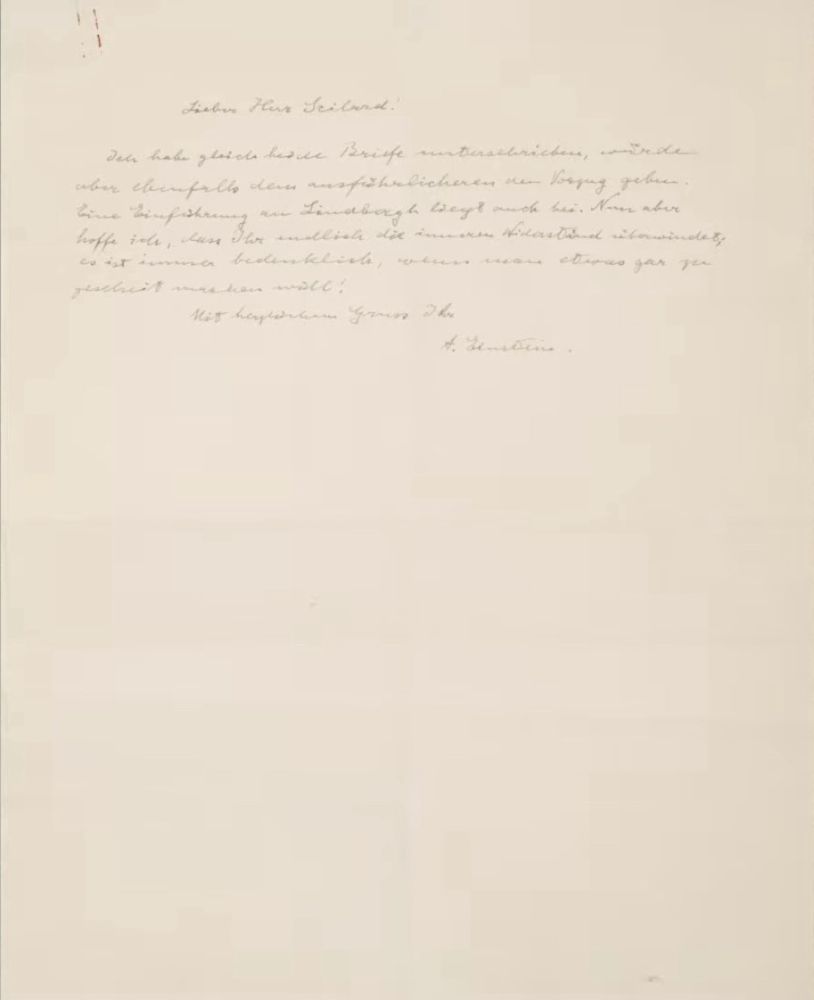 Lieber Herr Szilard!
Ich habe gleich beide Briefe unterschrieben, würde
aber ebenfalls dem ausführlicheren den Vorzug geben.
Eine Einführung an Lindbergh liegt auch bei. Nun aber
hoffe ich, dass Ihr endlich die inneren Widerstände überwindet;
es ist immer bedenklich, wenn man etwas gar zu
gescheit machen will!
Mit herzlichem Gruss Ihr
A. Einstein.